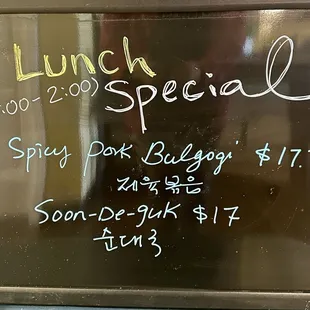 Lunch
:00-2:00) Special
Spicy Pork Bulgogi $17.
제육볶음
Soon-De-guk $17
순대국